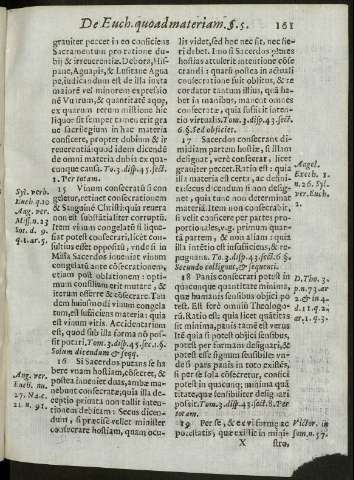 De Euch. quoad materiam. §. 5. 161
graviter peccet in eo consciens
Sacramentum pro ratione du-
bij & irreverentiæ. Debora, His-
pane, Aguapis, & Lusitane Agua
pe, iudicandum est de illa iuxta
maiorē vel minorem expressio
nē Vuarum, & quantitatē aquæ,
ex quarum retum mistione hic
liquor fit semper tamen erit gra
ve sacrilegium in hac materia
consicere, propter dubium & ir
reverentiā: quod idem dicendū
de omni materia dubia ex qua-
cunque causa. To. 3. disp. 45. sect.
1. Per totam.
15 Vinum consecratū si con
geletur, retinet consecrationem
& Sanguinē Christi: quia revera
non est substātialiter corruptū.
Item vinum congelatū si lique-
fiat potest consecrari, licèt con-
sultius esset oppositū, vnde si in
Missa Sacerdos inveniat vinum
congelatū ante cōsecrationem,
etiam post oblationem: opti-
mum consilium erit mutare, &
iterum offerre & cōsecrare. Tan
dem huiusmodi vinum congela
tum, est sufficiens materia: quia
est vinum vitis. Accidentarium
est, quod sub illa forma nō pos-
sit potari, Tom. 3. disp. 45. sect. 6.
Solum dicendum & seqq.
16 Si Sacerdos putans se ha
bere vnam hostiam, cōsecret, &
postea inveniet duas, ambæ ma-
nebunt consecratæ, quia illa de-
ceptio privata non tollit inten-
tionem debitam: Secus dicen-
dum, si præcisè vellet minister
consecrare hostiam, quam ocu-
Syl. verb.
Euch. q. 10
Ang. ver.
Miss. n. 23
Sot. d. 9.
q. 1. ar. 5.
Ang. ver.
Euch. nu.
27. Na. c.
21. n. 91.
lis videt, sed hoc nec sit, nec fie-
ri debet. Imò si Sacerdos plures
hostias attulerit intentione cōse
crandi: quarū postea in actuali
consecratione fuit oblitus, & re
cordatur tantum illius, quā ha-
bet in manibus, manent omnes
consecratæ, quia sufficit inten-
tio virtualis. Tom. 3. disp. 43. sect.
6. §. Sed obijciet.
17 Sacerdos consecrans di-
midiam partem hostiæ, si illam
designat, verè consecrat, licèt
graviter peccet. Ratio est: quia
illa materia est certa, ac defini-
ta: secus dicendum si non desig-
net, quia tunc non determinat
materiam. Item non consecrabit,
si velit consicere per partes pro-
portionales, v. g. primum quar-
tā partem, & non aliam: quia
illa intētio est insufficiens, & re-
pugnans. To. 3. disp. 43. sect. 6. §.
Secundo colligitur, & sequenti.
18 Panis consecrari potest in
quacunque quantitate minima,
quæ humanis sensibus obijci po
test. Est ferè omniū Theologo-
rū. Ratio est: quia licèt quātitas
sit minima, panis tamē est verus
ità quia si potest obijci sensibus,
potest per formam designari, &
potest esse signum sensibile: vn-
de si pars panis in toto existēs,
si per se sola cōsecretur, confici
potest in quacunq; minima quā
titate, quæ sensibiliter designari
possit. Tom. 3. disp. 43. sect. 8. Per
totam.
19 Per se, & ex vi formæ ac
potestatis, quæ existit in mini-
Angel.
Euch. 1.
n. 26. Syl.
ver. Euch.
1.
D. Tho. 3.
p. n. 73. ar
2. & in 4.
d. 11. q. 2.
ar. 1. q. 3.
Victor. in
sum. n. 57.
X stro,